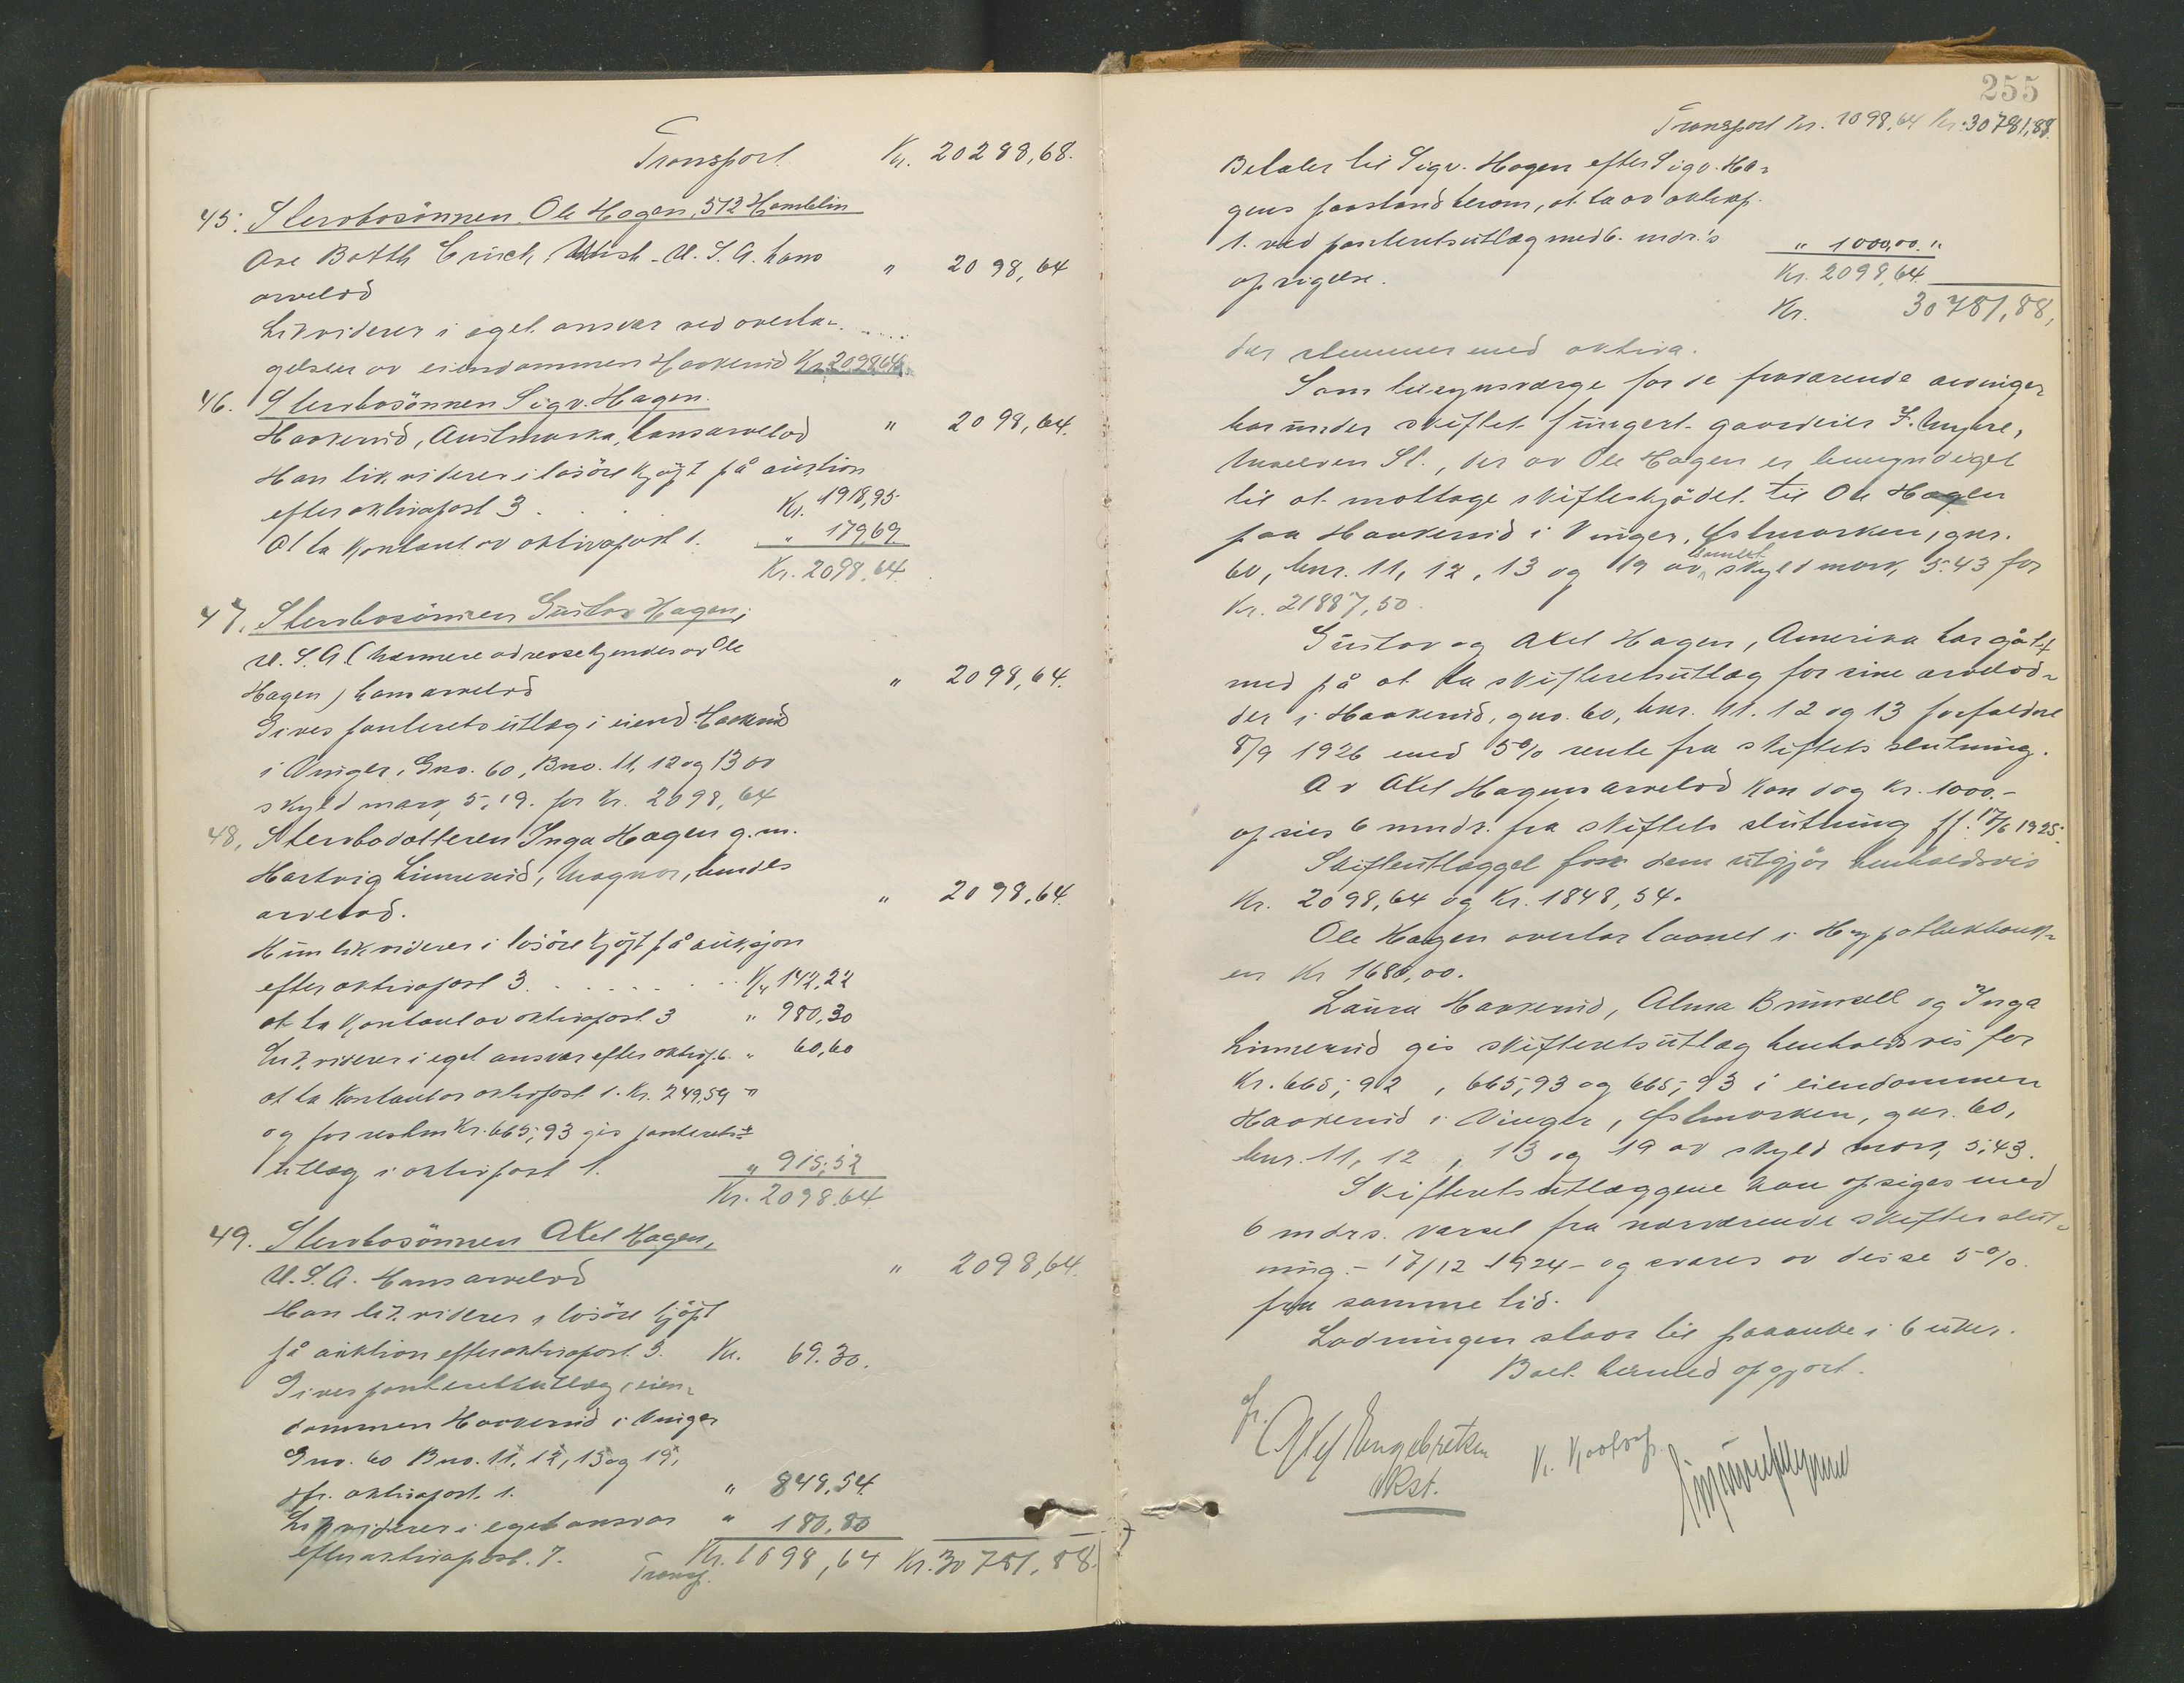 Transport. Kr. 20288,68.
45. Stervbosönnen Ole Hagen, 512 Hamblin
Ave Battle Creich, Mish. U.S.A. hans " 2098,64
arvelod
Likviderer i eget ansvar ved overta-
gelsen av eiendommen Haakerud Kr. 2098,64
46. Stervbosönnen Sigv. Hagen.
Haakerud, Austmarka, hans arvelod " 2098,64.
Han likviderer i lösöre kjöpt på auktion
efter aktivapost 3 . . . . Kr. 1918,95
At ta kontant av aktivapost 1. " 179,69
Kr. 2098,64.
47. Stervbosönnen Gustav Hagen,
U.S.A. (nærmere adresse kjendes av Ole
Hagen) hans arvelod " 2098,64.
Gives panteretsutlæg i eiend. Haakerud
i Vinger, Gno. 60, Bno. 11, 12 og 13 av
skyld mark 5,19. for Kr. 2098,64
48. Stervbodatteren Inga Hagen g.m.
Hartvig Linnerud, Magnor, hendes
arvelod. " 2098,64.
Hun likviderer i lösöre kjöpt på auksjon
efter aktivapost 3. . . . . . . . Kr 142,22
at ta kontant av aktivapost 3 " 980,30
Likviderer i eget ansvar efter aktivp. 6. " 60,60
at ta kontant av aktivpost 1. Kr. 249,59 "
og for resten Kr. 665,93 gis panterets-
utlæg i aktivpost 1. " 915,52
Kr. 2098,64
49. Stervbosönnen Axel Hagen,
U.S.A. Hans arvelod " 2098,64.
Han likviderer i lösöre kjöpt
på auktion efter aktivapost 3. Kr. 69.30.
Gives panteretsutlæg i eien-
dommen Haakerud i Vinger
Gno. 60 Bno. 11, 12, 13 og 19,
jfr. aktivapost. 1. " 848,54
Likviderer i eget ansvar " 180,80
efter aktivapost. 7.
Transp. Kr. 1098,64 Kr. 30781,88.
255
Transport Kr. 1098,64 Kr. 30781,88.
Betaler til Sigv. Hagen efter Sigv. Ha-
gens paastand herom, at ta av aktivap.
1. ved panteretsutlæg med 6. mdr.'s " 1000,00. "
opsigelse. Kr. 2098,64.
Kr. 30781,88,
der stemmer med aktiva.
Som tilsynsværge for de fraværende arvinger
har under skiftet fungert gaardeier F. Myhre,
St., der av Ole Hagen er bemyndiget
til at mottage skifteskjödet til Ole Hagen
paa Haakerud i Vinger, Østmarken, gnr.
60, bnr. 11, 12, 13 og 19 av samlet skyld mark 5.43 for
Kr. 21887,50.
Gustav og Axel Hagen, Amerika har gåt
med på at ta skifteretsutlæg for sine arvelod-
der i Haakerud, gno. 60, bnr. 11. 12 og 13 forfaldne
8/9 1926 med 5% rente fra skiftets slutning.
Av Axel Hagens arvelod kan dog Kr. 1000.-
opsies 6 mndr. fra skiftets slutning ff. 17/6 1925.
Skifteutlægget for dem utgjör henholdsvis
Kr. 2098,64 og Kr. 1848,54.
Ole Hagen overtar laanet i Hypothekbank-
en Kr 1680,00.
Laura Haakerud, Alma Brunsell og Inga
Linnerud gis skifteretsutlæg henholdsvis for
Kr. 665,92, 665,93 og 665,93 i eiendommen
Haakerud i Vinger, Østmarken, gnr. 60,
bnr. 11, 12, 13 og 19 av skyld mark 5,43.
Skifteretsutlæggene kan opsiges med
6 mdrs. varsel fra nærværende skiftes slut-
ning - 17/12 1924 - og svares av disse 5%
fra samme tid.
Lodningen staar til paaanke i 6 uker.
Boet hermed opgjort.
Engebretsen